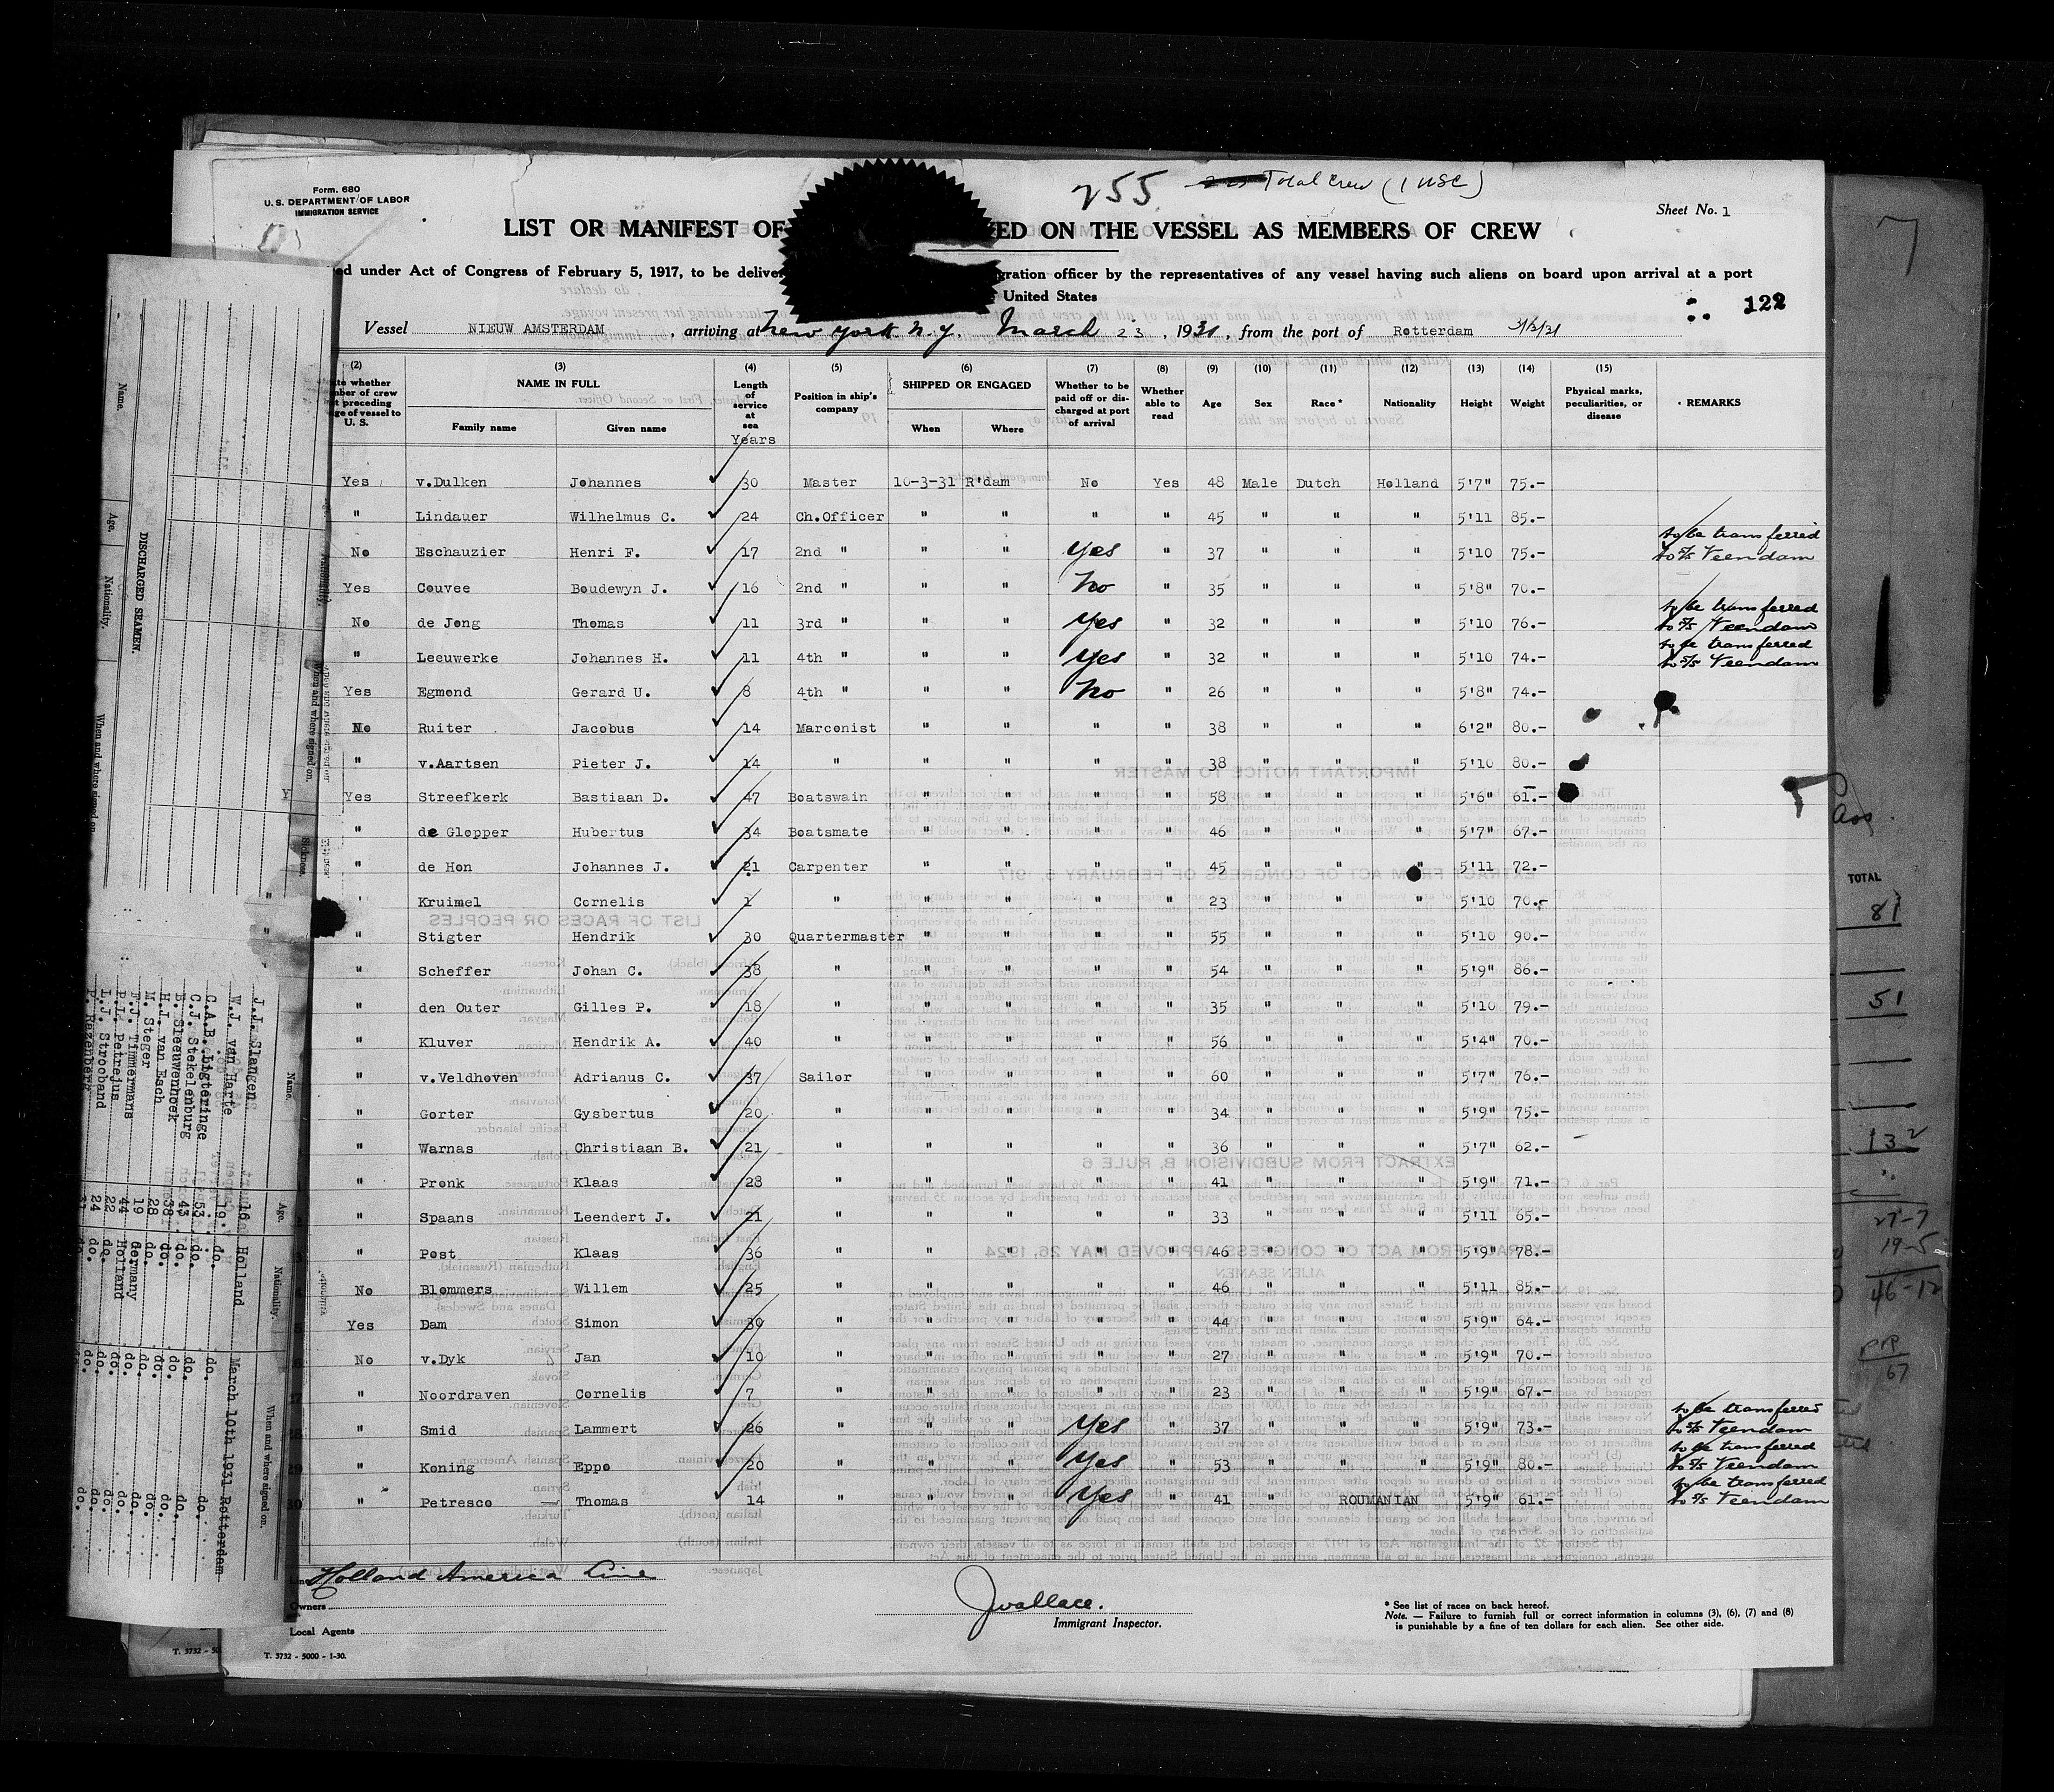 Form. 680
U. S. DEPARTMENT OF LABOR
IMMIGRATION SERVICE
255 Total Crew (1 USC)
Sheet No. 1
LIST OR MANIFEST OF ZED ON THE VESSEL AS MEMBERS OF CREW
ed under Act of Congress of February 5, 1917, to be deliver gration officer by the representatives of any vessel having such aliens on board upon arrival at a port
United States
122
Vessel NIEUW AMSTERDAM, arriving at New York N.Y. March 23, 1931, from the port of Rotterdam
(2) (3) (4) (5) (6) (7) (8) (9) (10) (11) (12) (13) (14) (15)
NAME IN FULL Family name Given name Length of service at sea Years Position in ship's company SHIPPED OR ENGAGED When Where Whether to be paid off or discharged at port of arrival Whether able to read Age Sex Race * Nationality Height Weight Physical marks, peculiarities, or disease REMARKS
Yes v.Dulken Johannes 30 Master 10-3-31 R'dam No Yes 48 Male Dutch Holland 5'7" 75.-
" Lindauer Wilhelmus C. 24 Ch.Officer " " " " 45 " " " 5'11 85.-
No Eschauzier Henri F. 17 2nd " " " Yes " 37 " " " 5'10 75.- to be transferred to S/S Veendam
Yes Couvee Boudewyn J. 16 2nd " " " No " 35 " " " 5'8" 70.-
No de Jong Thomas 11 3rd " " " Yes " 32 " " " 5'10 76.- to be transferred to S/S Veendam
" Leeuwerke Johannes H. 11 4th " " " Yes " 32 " " " 5'10 74.- to be transferred to S/S Veendam
Yes Egmond Gerard U. 8 4th " " " No " 26 " " " 5'8" 74.-
No Ruiter Jacobus 14 Marconist " " " " 38 " " " 6'2" 80.-
" v.Aartsen Pieter J. 14 " " " " " 38 " " " 5'10 80.-
Yes Streefkerk Bastiaan D. 47 Boatswain " " " " 58 " " " 5'6" 61.-
" de Glopper Hubertus 34 Boatsmate " " " " 46 " " " 5'7" 67.-
" de Hon Johannes J. 21 Carpenter " " " " 45 " " " 5'11 72.-
" Kruimel Cornelis 1 " " " " " 23 " " " 5'10 70.-
" Stigter Hendrik 30 Quartermaster " " " " 55 " " " 5'10 90.-
" Scheffer Johan C. 38 " " " " " 54 " " " 5'9" 86.-
" den Outer Gilles P. 18 " " " " " 35 " " " 5'10 79.-
" Kluver Hendrik A. 40 " " " " " 56 " " " 5'4" 70.-
" v.Veldhoven Adrianus C. 37 Sailor " " " " 60 " " " 5'7" 76.-
" Gorter Gysbertus 20 " " " " " 34 " " " 5'9" 75.-
" Warnas Christiaan B. 21 " " " " " 36 " " " 5'7" 62.-
" Pronk Klaas 28 " " " " " 41 " " " 5'9" 71.-
" Spaans Leendert J. 21 " " " " " 33 " " " 5'11 65.-
" Post Klaas 36 " " " " " 46 " " " 5'9" 78.-
No Blommers Willem 25 " " " " " 46 " " " 5'11 85.-
Yes Dam Simon 30 " " " " " 44 " " " 5'9" 64.-
No v.Dyk Jan 10 " " " " " 27 " " " 5'9" 70.-
" Noordraven Cornelis 7 " " " " " 23 " " " 5'9" 67.-
" Smid Lammert 26 " " " Yes " 37 " " " 5'9" 73.- to be transferred to S/S Veendam
" Koning Eppo 20 " " " Yes " 53 " " " 5'9" 80.- to be transferred to S/S Veendam
" Petresco Thomas 14 " " " Yes " 41 " ROUMANIAN 5'9" 61.- to be transferred to S/S Veendam
Holland America Line
Owners
Local Agents
T. 3732 - 5000 - 1-30.
JWallace.
Immigrant Inspector.
* See list of races on back hereof.
Note. — Failure to furnish full or correct information in columns (3), (6), (7) and (8)
is punishable by a fine of ten dollars for each alien. See other side.
DISCHARGED SEAMEN.
Name. Age. Nationality. When and where signed on. Sickness.
J.J. Slangen 16 Holland March 10th 1931 Rotterdam
W.J. van Harte 19 do. do. do.
C.A.B. Ligteringe 53 do. do. do.
C.J. Stekelenburg do. do. do.
B. Sleeuwenhoek 43 do. do. do.
H.I. van Esch 38 do. do. do.
M. Steger 28 do. do. do.
F.J. Timmermans 19 Germany do. do.
P.L. Petrejus 44 Holland do. do.
L.J. Strooband 22 do. do. do.
P. Razenberg 24 do. do. do.
TOTAL
81
51
132
27-7
19-5
46-12
67